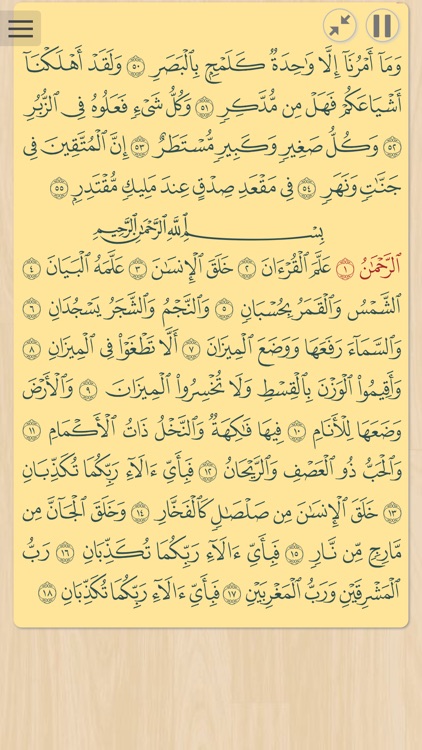 وَمَآ أَمۡرُنَآ إِلَّا وَٰحِدَةٌ كَلَمۡحِۭ بِٱلۡبَصَرِ ٥٠ وَلَقَدۡ أَهۡلَكۡنَآ
أَشۡيَاعَكُمۡ فَهَلۡ مِن مُّدَّكِرٖ ٥١ وَكُلُّ شَيۡءٖ فَعَلُوهُ فِي ٱلزُّبُرِ
٥٢ وَكُلُّ صَغِيرٖ وَكَبِيرٖ مُّسۡتَطَرٌ ٥٣ إِنَّ ٱلۡمُتَّقِينَ فِي
جَنَّٰتٖ وَنَهَرٖ ٥٤ فِي مَقۡعَدِ صِدۡقٍ عِندَ مَلِيكٖ مُّقۡتَدِرِۭ ٥٥
بِسۡمِ ٱللَّهِ ٱلرَّحۡمَٰنِ ٱلرَّحِيمِ
ٱلرَّحۡمَٰنُ ١ عَلَّمَ ٱلۡقُرۡءَانَ ٢ خَلَقَ ٱلۡإِنسَٰنَ ٣ عَلَّمَهُ ٱلۡبَيَانَ ٤
ٱلشَّمۡسُ وَٱلۡقَمَرُ بِحُسۡبَانٖ ٥ وَٱلنَّجۡمُ وَٱلشَّجَرُ يَسۡجُدَانِ ٦
وَٱلسَّمَآءَ رَفَعَهَا وَوَضَعَ ٱلۡمِيزَانَ ٧ أَلَّا تَطۡغَوۡاْ فِي ٱلۡمِيزَانِ ٨
وَأَقِيمُواْ ٱلۡوَزۡنَ بِٱلۡقِسۡطِ وَلَا تُخۡسِرُواْ ٱلۡمِيزَانَ ٩ وَٱلۡأَرۡضَ
وَضَعَهَا لِلۡأَنَامِ ١٠ فِيهَا فَٰكِهَةٞ وَٱلنَّخۡلُ ذَاتُ ٱلۡأَكۡمَامِ ١١
وَٱلۡحَبُّ ذُو ٱلۡعَصۡفِ وَٱلرَّيۡحَانُ ١٢ فَبِأَيِّ ءَالَآءِ رَبِّكُمَا تُكَذِّبَانِ
١٣ خَلَقَ ٱلۡإِنسَٰنَ مِن صَلۡصَٰلٖ كَٱلۡفَخَّارِ ١٤ وَخَلَقَ ٱلۡجَآنَّ مِن
مَّارِجٖ مِّن نَّارٖ ١٥ فَبِأَيِّ ءَالَآءِ رَبِّكُمَا تُكَذِّبَانِ ١٦ رَبُّ
ٱلۡمَشۡرِقَيۡنِ وَرَبُّ ٱلۡمَغۡرِبَيۡنِ ١٧ فَبِأَيِّ ءَالَآءِ رَبِّكُمَا تُكَذِّبَانِ ١٨